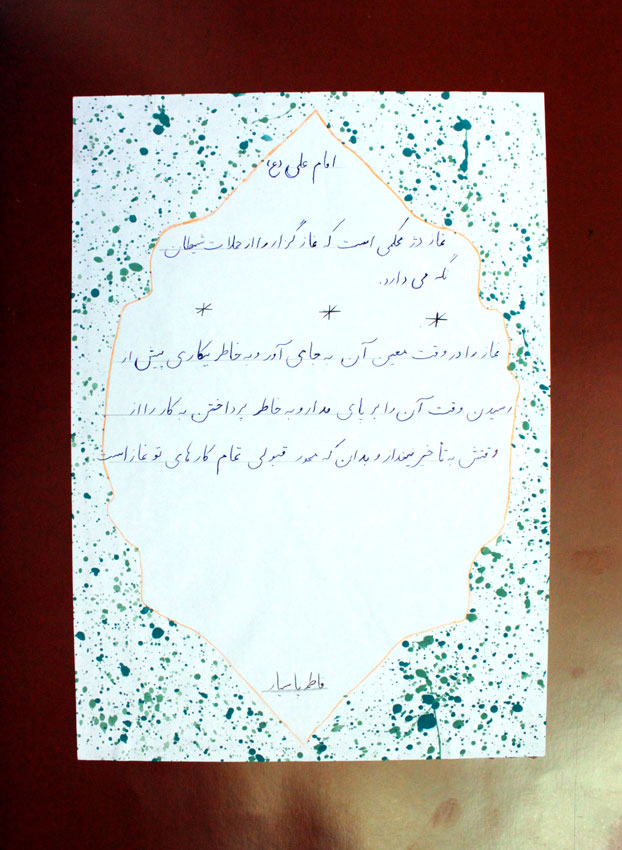 امام علی (ع)
نماز دژ محکمی است که نمازگزار را از حملات شیطان
نگه می دارد.
* * *
نماز را در وقت معین آن به جای آور و به خاطر بیکاری پیش از
رسیدن وقت آن را بر پای مدار و به خاطر پرداختن به کار را از
وقتش به تأخیر نینداز و بدان که محور قبولی تمام کارهای تو نماز است